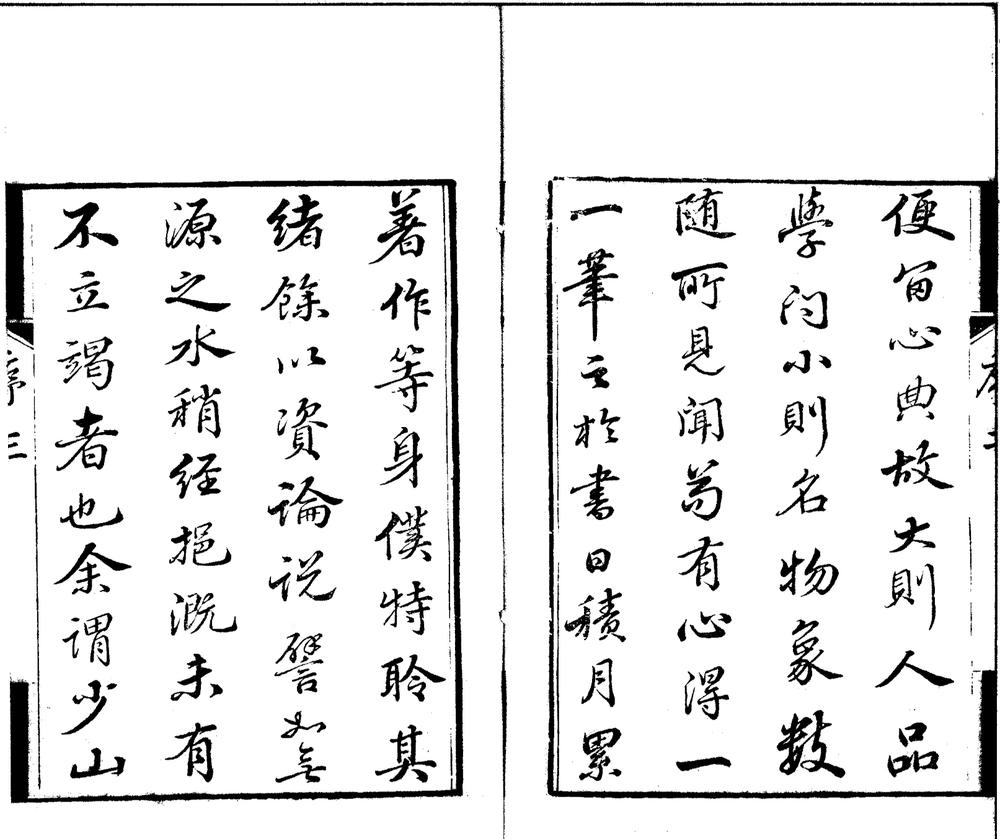 便留心典故大則人品
學问小則名物象數
随所見聞苟有心得一
一筆之於書日積月累
著作等身僕特聆其
緒餘以資論说譬如無
源之水稍经挹溉未有
不立竭者也余谓少山
序三